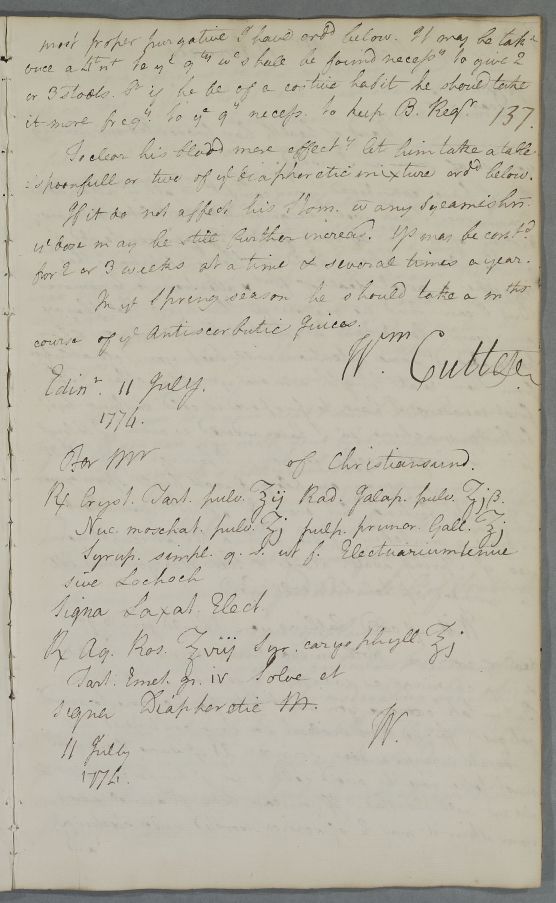 most proper purgative I have ord.d below. It may be tak.n
once a n.t to y.e q.ty w.c shall be found necess.y to give 2
or 3 stools. Or if he be of a costive habit he should take
it more freq.y to y.e q.y necess. to keep B. Reg.r 137.
To clear his blood more effect.y let him take a table
spoonfull or two of y.e diaphoretic mixture ord.d below.
If it do not affect his Stom. w any Sqeamishn:
y.e dose may be still further increas'd. Ys may be cont.d
for 2 or 3 weeks at a time & several times a year.
In y.e Spring season he should take a mths
course of y.e Antiscorbutic Juices.
Wm Cullen
Edinr. 11 July.
1774.
For Mr of Christiansund.
℞ Cryst. Tart. pulv. ℥ij Rad. Jalap. pulv. ℥jß.
Nuc. moschat. pulv. ʒj pulp. prunor. Gall. ℥j
Syrup. simpl. q. s. ut f. Electuarium tenue
sive Lochoch
Signa Laxat. Elect
℞ Aq. Ros. ℥viij Syr. caryophyll. ℥j
Tart. Emet. gr. iv Solve et
signa Diaphoretic M.
W.
11 July
1774.